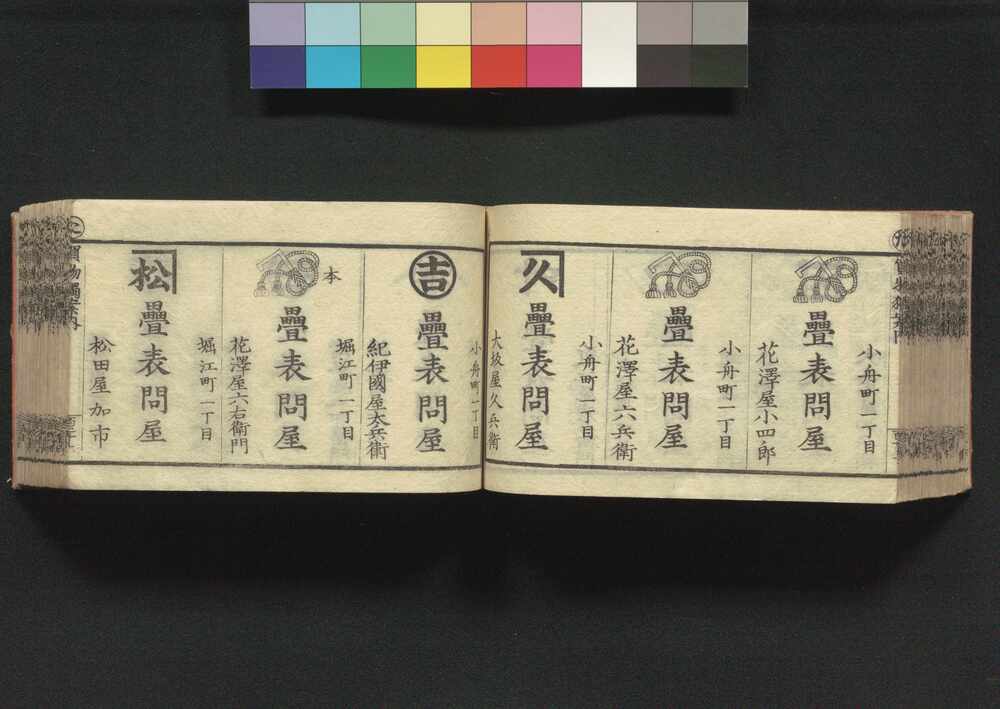 小舟町一丁目
疊表問屋
花澤屋小四郎
小舟町一丁目
疊表問屋
花澤屋六兵衛
小舟町一丁目
久
疊表問屋
大坂屋久兵衛
小舟町一丁目
吉
疊表問屋
紀伊國屋太兵衛
堀江町一丁目
本
疊表問屋
花澤屋六右衛門
堀江町一丁目
松
疊表問屋
松田屋加市